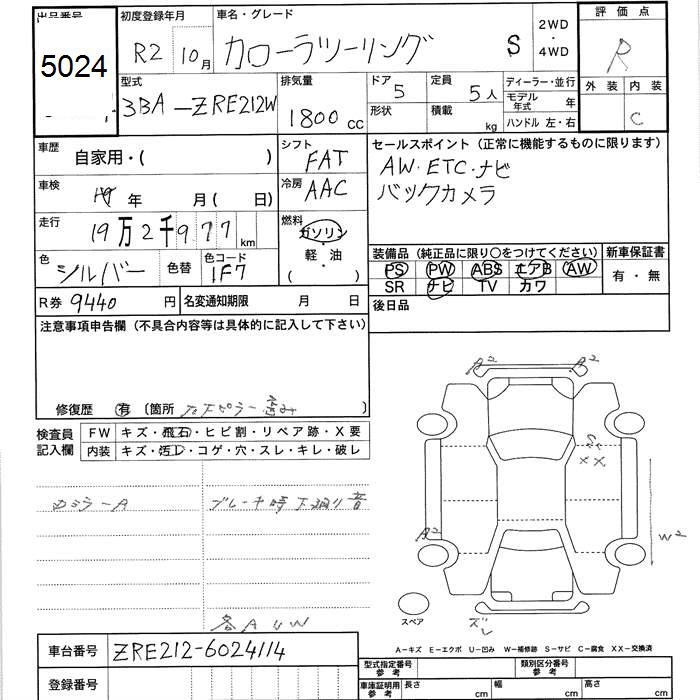 出品番号
5024
初度登録年月
R2 10月
車名・グレード
カローラツーリング S
2WD
・
4WD
評価点
R
外装 内装
C
型式
3BA-ZRE212W
排気量
1800 cc
ドア
5
形状
定員
5人
積載
kg
ディーラー・並行
モデル年式 年
ハンドル 左・右
車歴
自家用・( )
車検
年 月( 日)
走行
19万2千977km
色
シルバー
色替
色コード
1F7
シフト
FAT
冷房
AAC
燃料
ガソリン
・軽・油
( )
R券 9440 円
名変通知期限 月 日
セールスポイント(正常に機能するものに限ります)
AW・ETC・ナビ
バックカメラ
装備品(純正品に限り○をつけてください)
PS PW ABS エアB AW
SR ナビ TV カワ
新車保証書
有・無
後日品
注意事項申告欄(不具合内容等は具体的に記入して下さい)
修復歴 有 〔箇所 〕
検査員記入欄
FW キズ・飛石・ヒビ割・リペア跡・X要
内装 キズ・汚レ・コゲ・穴・スレ・キレ・破レ
ブレーキ時 下廻り音
各A U W
A2 A2
XX
A2
W2
ズレ
スペア
A-キズ E-エクボ U-凹み W-補修跡 S-サビ C-腐食 XX-交換済
車台番号 ZRE212-6024114
登録番号
型式指定番号 参考
類別区分番号 参考
車庫証明用 参考
長さ cm
幅 cm
高さ cm